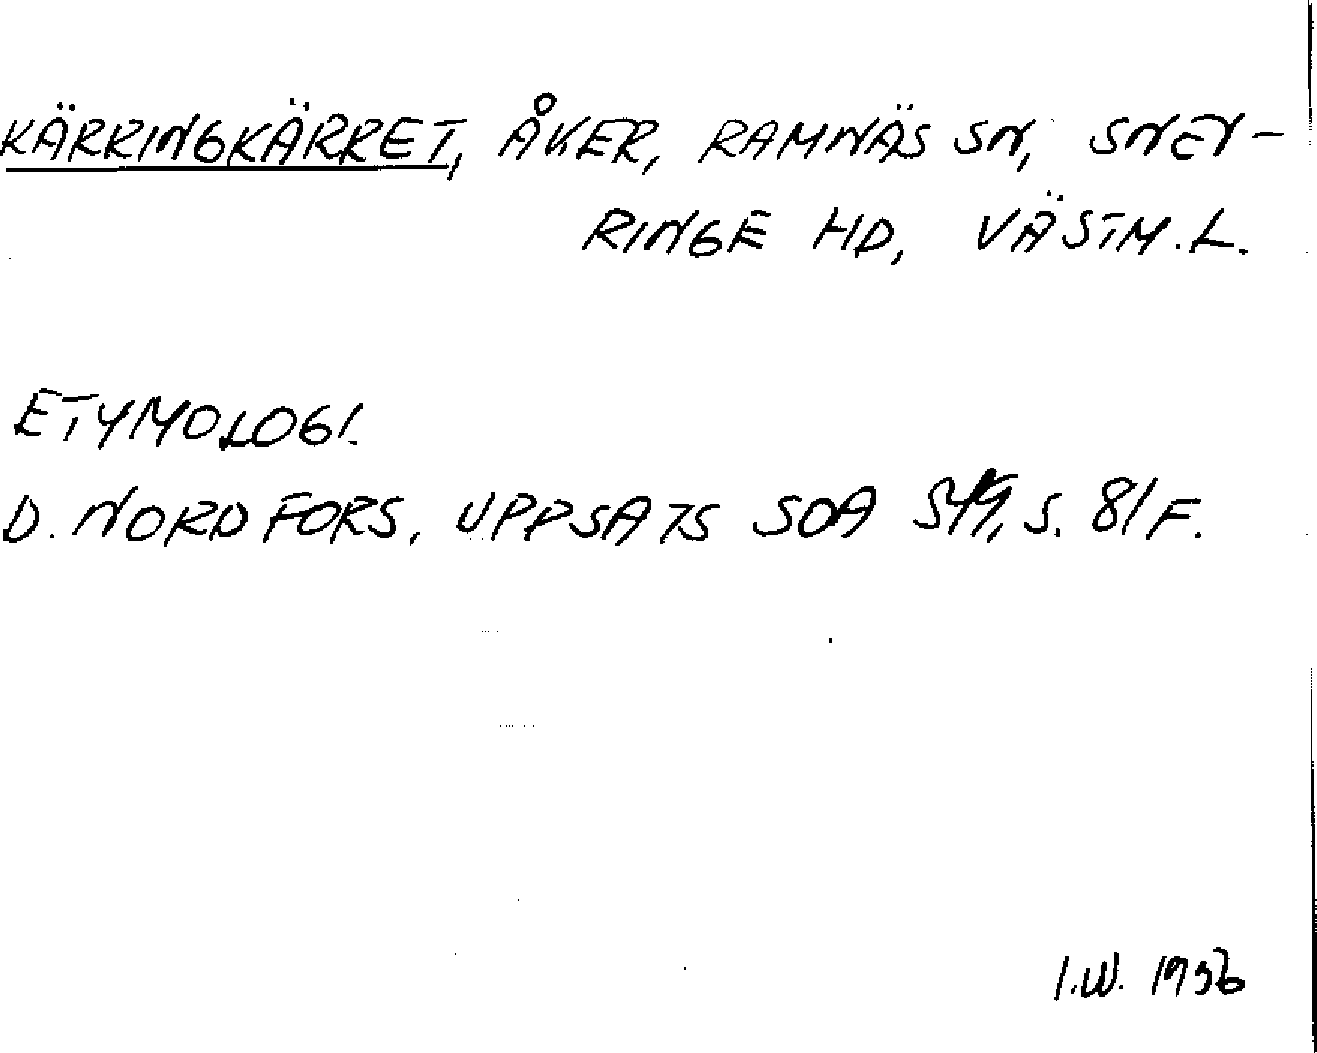 KÄRRINGKÄRRET, ÅKER, RAMNÄS SN, SNEV-
RINGE HD, VÄSTM.L.
ETYMOLOGI.
D. NORDFORS, UPPSATS SOA S. 81 F.
I.W. 1936